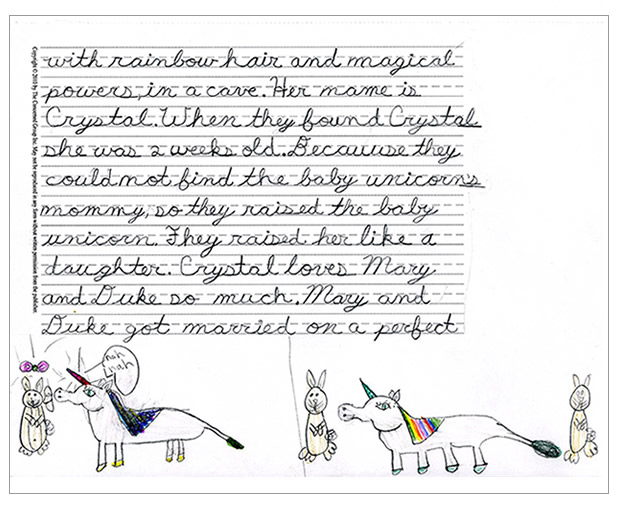 with rainbow hair and magical
powers, in a cave. Her mame is
Crystal. When they found Crystal
she was 2 weeks old. Becauuse they
could not find the baby unicorn's
mommy, so they raised the baby
unicorn. They raised her like a
daughter. Crystal loves Mary
and Duke so much. Mary and
Duke got married on a perfect
nah
nah
Copyright © 2010 by The Concerned Group Inc. May not be reproduced in any form without written permission from the publisher.